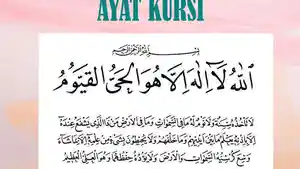 AYAT KURSI
بِسْمِ اللهِ الرَّحْمٰنِ الرَّحِيْمِ
اَللهُ لَآ اِلٰهَ اِلَّا هُوَ الْحَيُّ الْقَيُّوْمُ
لَا تَأْخُذُهُ سِنَةٌ وَلَا نَوْمٌ لَهُ مَا فِي السَّمٰوَاتِ وَمَا فِي الْاَرْضِ مَنْ ذَا الَّذِيْ يَشْفَعُ عِنْدَهُ
اِلَّا بِاِذْنِهِ يَعْلَمُ مَا بَيْنَ اَيْدِيْهِمْ وَمَا خَلْفَهُمْ وَلَا يُحِيْطُوْنَ بِشَيْءٍ مِنْ عِلْمِهِ اِلَّا بِمَا شَآءَ
وَسِعَ كُرْسِيُّهُ السَّمٰوَاتِ وَالْاَرْضَ وَلَا يَؤُدُهُ حِفْظُهُمَا وَهُوَ الْعَلِيُّ الْعَظِيْمُ